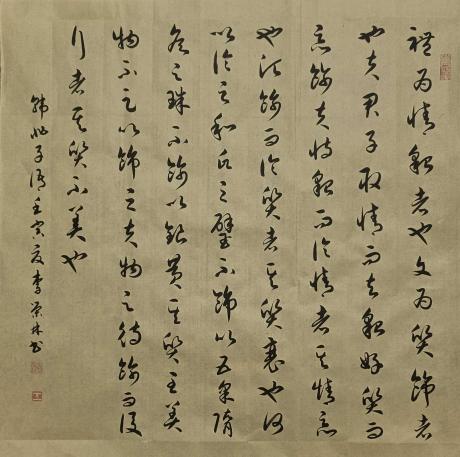 禮為情貌者也文為質飾者
也夫君子取情而去貌好質而
惡飾夫恃貌而論情者其情惡
也須飾而論質者其質衰也何
以論之和氏之璧不飾以五采隋
侯之珠不飾以銀黃其質至美
物不足以飾之夫物之待飾而後
行者其質不美也
韓非子語壬寅夏李榮林書